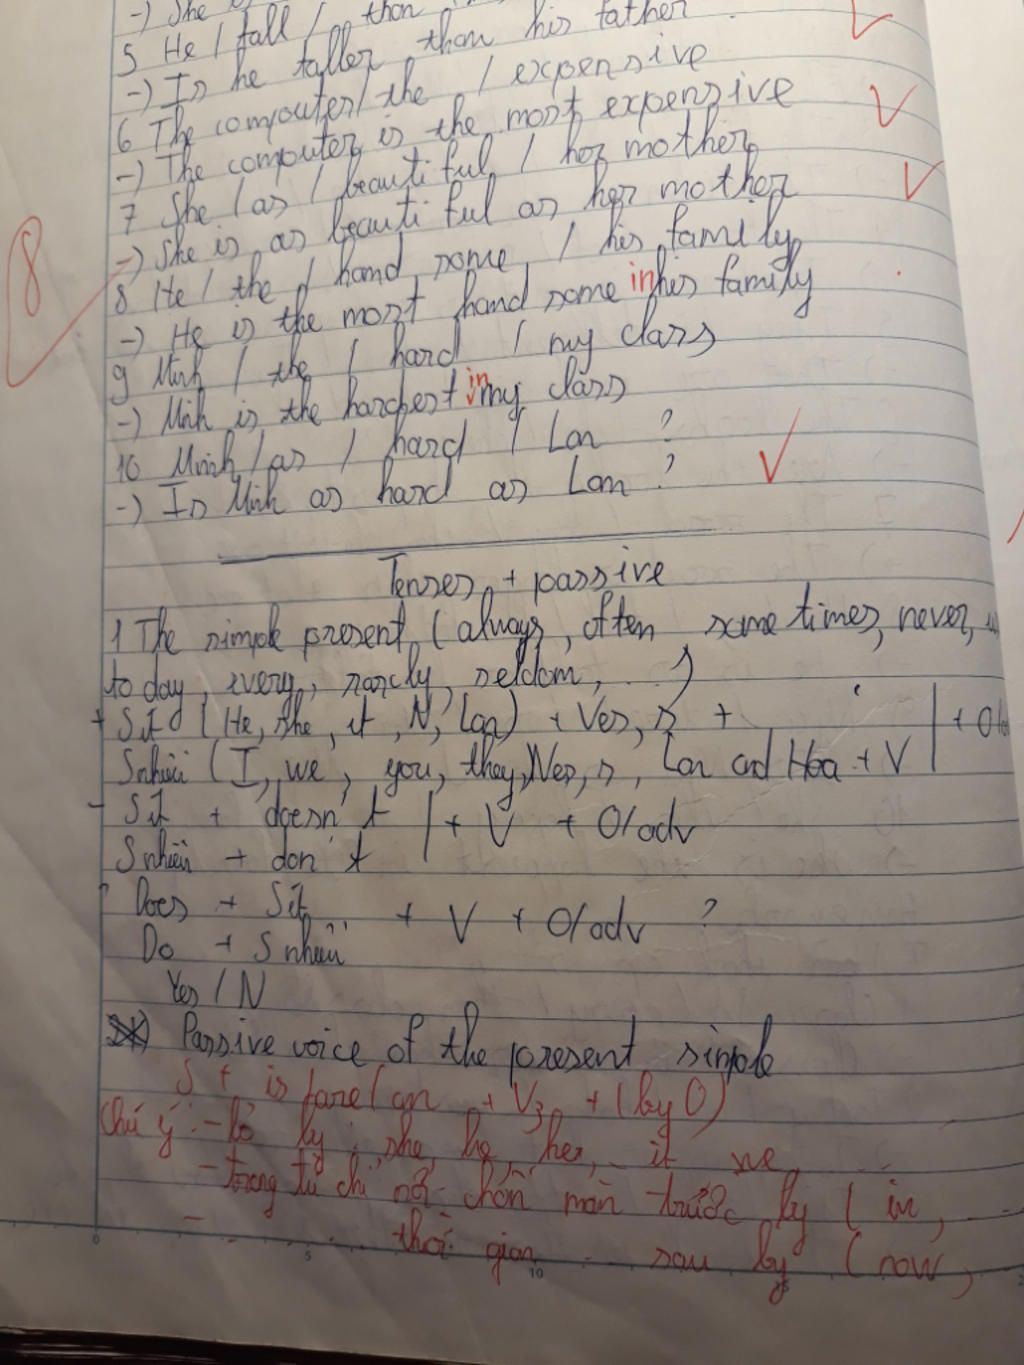 -) She
5 He / tall / than
-) Is he taller than his father
6 The computer / the / expensive
-) The computer is the most expensive
7 She / as / beautiful / her mother
-) She is as beautiful as her mother
8
8 He / the / hand some / his family
-) He is the most hand some in his family
9 Minh / the / hard / my class
-) Minh is the hardest in my class
10 Minh / as / hard / Lan ?
-) Is Minh as hard as Lan ?
Tenses + passive
1 The simple present (always, often sometimes, never,
to day, every, rarely, seldom, ...)
+ S ít (He, she, it, N, Lan) + Ves, s + | + O/adv
S nhiều (I, we, you, they, Nes, s, Lan and Hoa + V
- S ít + doesn't | + V + O/adv
S nhiều + don't
? Does + S ít + V + O/adv ?
Do + S nhiều
Yes / N
Passive voice of the present simple
S + is / are / am + V3 + (by O)
Chú ý: - bỏ by she, he, her, it we
- trạng từ chỉ nơi chốn trước by ( in,
- thời gian sau by ( now,